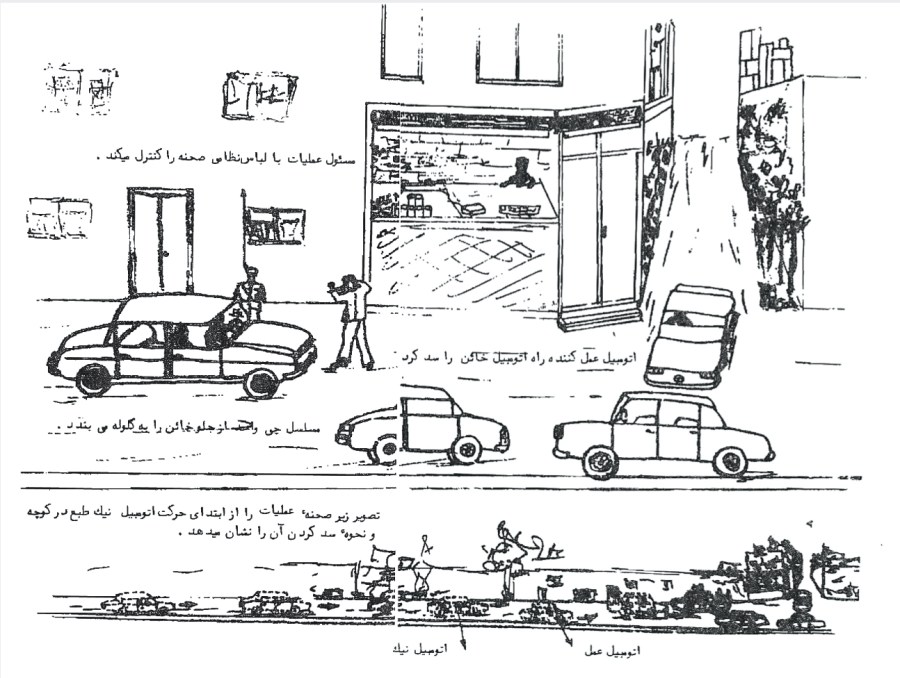 مسئول عملیات با لباس نظامی صحنه را کنترل میکند .
اتومبیل عمل کننده راه اتومبیل خائن را سد کرد
مسلسل چی واحد از جلو خائن را به گلوله می بندد .
تصویر زیر صحنهٔ عملیات را از ابتدای حرکت اتومبیل نیک طبع در کوچه
و نحوهٔ سد کردن آن را نشان میدهد .
اتومبیل نیك
اتومبیل عمل